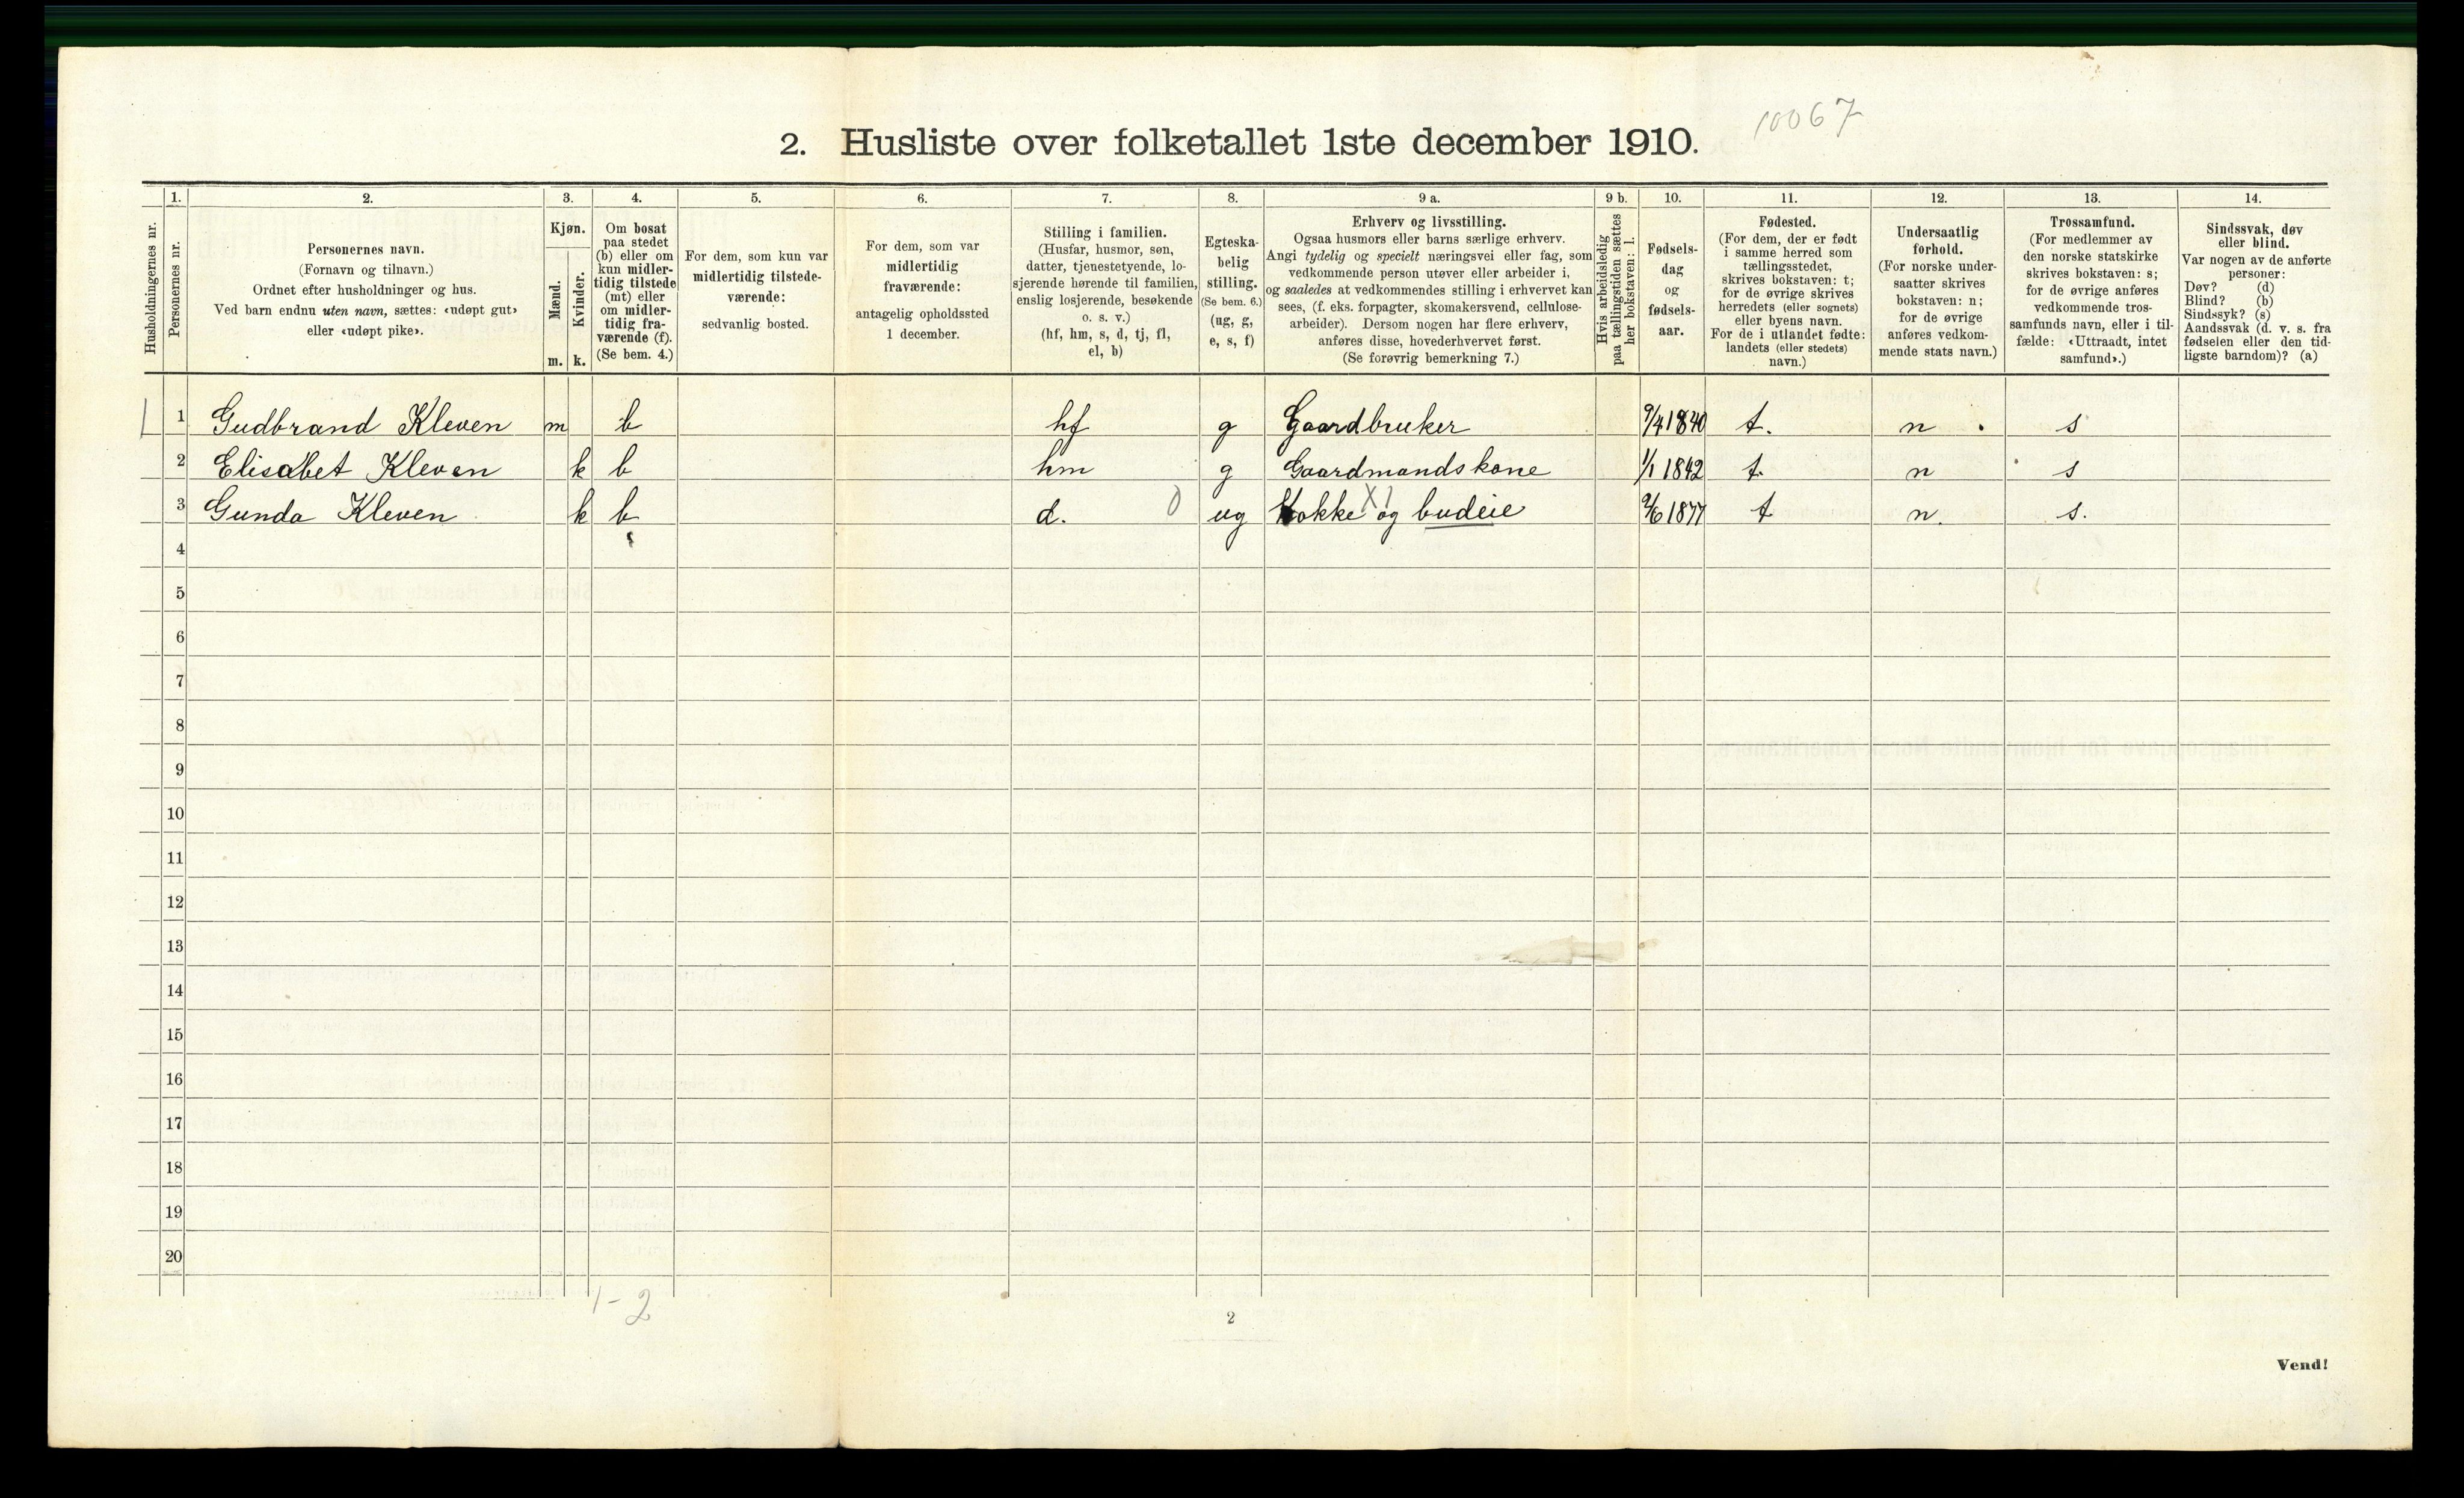 10067
2. Husliste over folketallet 1ste december 1910.
Husholdningernes nr.
1.
Personernes nr.
2.
Personernes navn.
(Fornavn og tilnavn.)
Ordnet efter husholdninger og hus.
Ved barn endnu uten navn, sættes: «udøpt gut»
eller «udøpt pike».
3.
Kjøn.
Mænd.
Kvinder.
m. k.
4.
Om bosat
paa stedet
(b) eller om
kun midler-
tidig tilstede
(mt) eller
om midler-
tidig fra-
værende (f).
(Se bem. 4.)
5.
For dem, som kun var
midlertidig tilstede-
værende:
sedvanlig bosted.
6.
For dem, som var
midlertidig
fraværende:
antagelig opholdssted
1 december.
7.
Stilling i familien.
(Husfar, husmor, søn,
datter, tjenestetyende, lo-
sjerende hørende til familien,
enslig losjerende, besøkende
o. s. v.)
(hf, hm, s, d, tj, fl,
el, b)
8.
Egteska-
belig
stilling.
(Se bem. 6.)
(ug, g,
e, s, f)
9 a.
Erhverv og livsstilling.
Ogsaa husmors eller barns særlige erhverv.
Angi tydelig og specielt næringsvei eller fag, som
vedkommende person utøver eller arbeider i,
og saaledes at vedkommendes stilling i erhvervet kan
sees, (f. eks. forpagter, skomakersvend, cellulose-
arbeider). Dersom nogen har flere erhverv,
anføres disse, hovederhvervet først.
(Se forøvrig bemerkning 7.)
9 b.
Hvis arbeidsledig
paa tællingstiden sættes
her bokstaven: l.
10.
Fødsels-
dag
og
fødsels-
aar.
11.
Fødested.
(For dem, der er født
i samme herred som
tællingsstedet,
skrives bokstaven: t;
for de øvrige skrives
herredets (eller sognets)
eller byens navn.
For de i utlandet fødte:
landets (eller stedets)
navn.)
12.
Undersaatlig
forhold.
(For norske under-
saatter skrives
bokstaven: n;
for de øvrige
anføres vedkom-
mende stats navn.)
13.
Trossamfund.
(For medlemmer av
den norske statskirke
skrives bokstaven: s;
for de øvrige anføres
vedkommende tros-
samfunds navn, eller i til-
fælde: «Uttraadt, intet
samfund».)
14.
Sindssvak, døv
eller blind.
Var nogen av de anførte
personer:
Døv? (d)
Blind? (b)
Sindssyk? (s)
Aandssvak (d. v. s. fra
fødselen eller den tid-
ligste barndom)? (a)
1 1 Gudbrand Kleven m b hf g Gaardbruker 9/4 1840 t. n s
2 Elisabet Kleven k b hm g Gaardmandskone 1/1 1842 t. n s
3 Gunda Kleven k b d. 0 ug Kokke og budeie X1 9/6 1877 t n. s.
4
5
6
7
8
9
10
11
12
13
14
15
16
17
18
19
20
1-2
2
Vend!